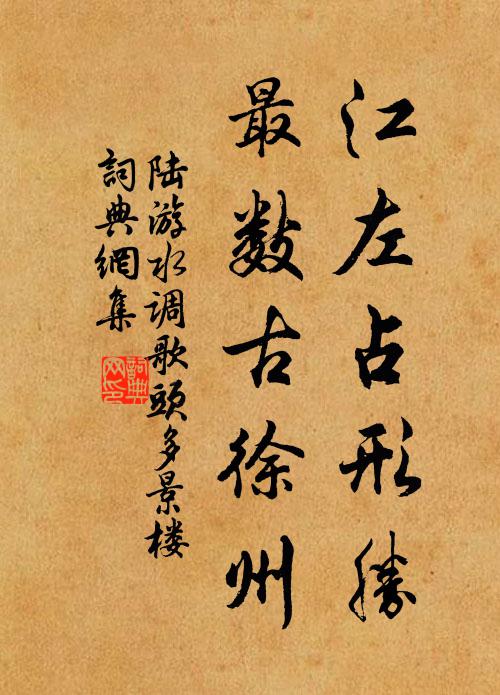 江左占形勝
最数古徐州
陆游水调歌頭多景楼
詞典網集
詞典网印